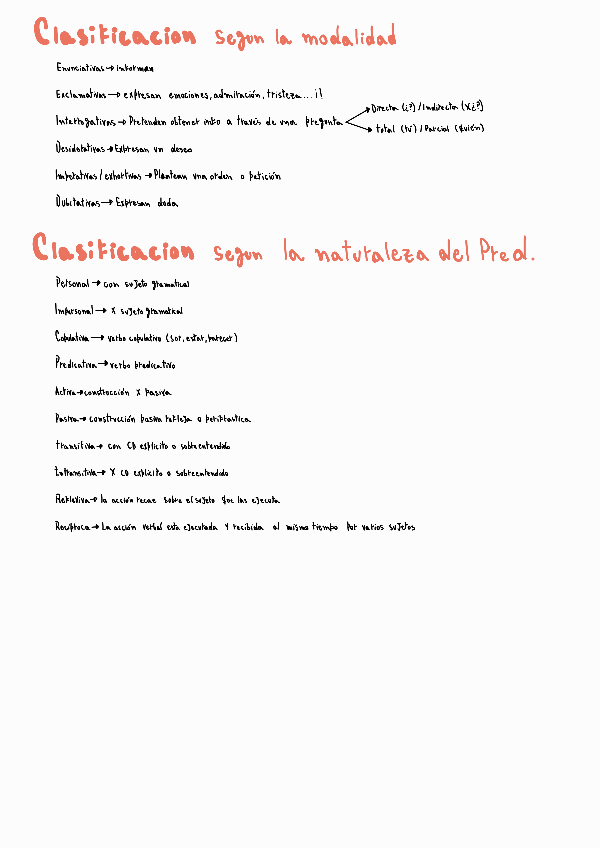 Clasificacion segun la modalidad
Enunciativas → informan
Exclamativas → expresan emociones, admiración, tristeza... ¡!
Interrogativas → Pretenden obtener info a través de una pregunta → Directa (¿?) / Indirecta (X¿?)
→ total (tú) / Parcial (quién)
Desiderativas → Expresan un deseo
Imperativas / exhortivas → Plantean una orden o petición
Dubitativas → Expresan duda
Clasificacion segun la naturaleza del Pred.
Personal → con sujeto gramatical
Impersonal → X sujeto gramatical
Copulativa → verbo copulativo (ser, estar, parecer)
Predicativa → verbo predicativo
Activa → construcción X pasiva
Pasiva → construcción pasiva refleja o perifrastica
transitiva → con CD explicito o sobreentendido
Intransitiva → X CD explicito o sobreentendido
Reflexiva → la acción recae sobre el sujeto que las ejecuta
Reciproca → La acción verbal esta ejecutada y recibida al mismo tiempo por varios sujetos